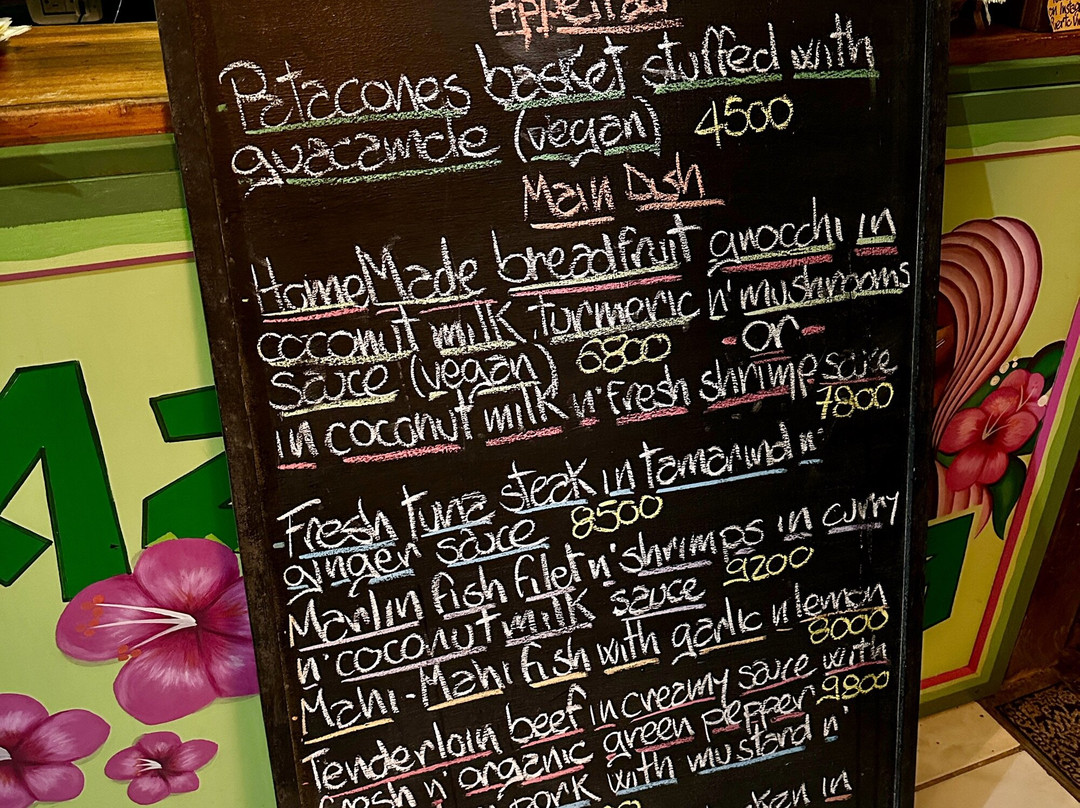 Appetizer
Patacones basket stuffed with
guacamole (vegan) 4500
Main Dish
HomeMade breadfruit gnocchi in
coconut milk, turmeric n' mushrooms
sauce (vegan) 6800 -or-
in coconut milk n' fresh shrimp sauce
7800
Fresh tuna steak in tamarind n'
ginger sauce 8500
Marlin fish filet n' shrimps in curry
n' coconut milk sauce 9200
Mahi-Mahi fish with garlic n lemon
8000
Tenderloin beef in creamy sauce with
fresh n' organic green pepper 9800
pork with mustard n'
in